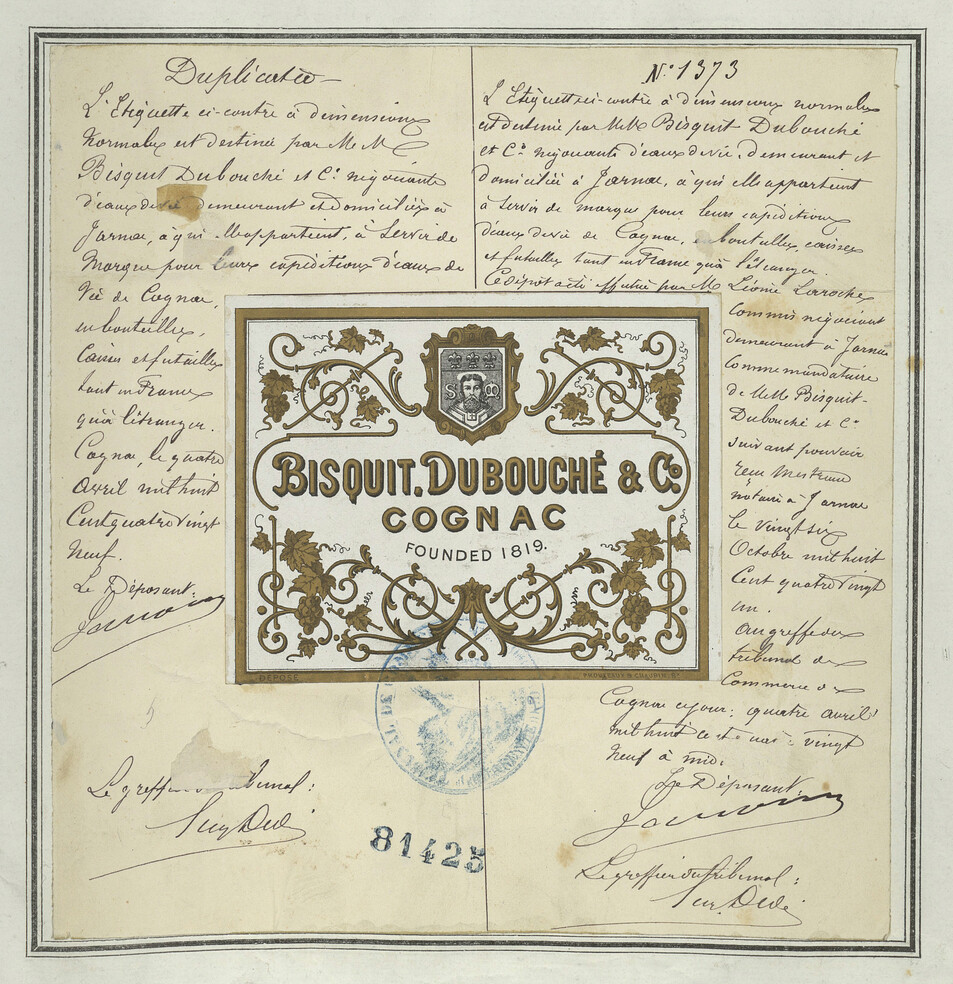 Duplicata
L'Etiquette ci-contre à dimensions
Normales est destinée par M.M.
Bisquit Dubouché et Cie négociants
d'eaux de vie demeurant et domiciliés à
Jarnac, à qui elle appartient, à servir de
Marque pour leurs expéditions d'eaux de
Vie de Cognac,
en bouteilles,
Caisses et futailles
tant en France
qu'à l'étranger.
Cognac, le quatre
Avril mil huit
Cent quatre vingt
Neuf.
Le Déposant:
Le greffier du tribunal:
N° 1373
L'Etiquette ci-contre à dimensions normales
est destinée par M.M. Bisquit Dubouché
et Cie négociants d'eaux de vie, demeurant et
domiciliés à Jarnac, à qui elle appartient
à servir de marque pour leurs expéditions
d'eaux de vie de Cognac, en bouteilles, caisses
et futailles tant en France qu'à l'étranger.
Ce dépôt a été effectué par M. Léonie Laroche
Commis négociant
demeurant à Jarnac
Comme mandataire
de M.M. Bisquit-
Dubouché et Cie
suivant pouvoir
reçu
notaire à Jarnac
le vingt six
Octobre mil huit
Cent quatre vingt
un.
Au greffe du
tribunal de
Commerce de
Cognac ce jour: quatre avril
mil huit cent quatre-vingt
neuf à midi
Le Déposant:
Le greffier du tribunal:
S M
BISQUIT, DUBOUCHÉ & Co.
COGNAC
FOUNDED 1819.
DÉPOSÉ
81425